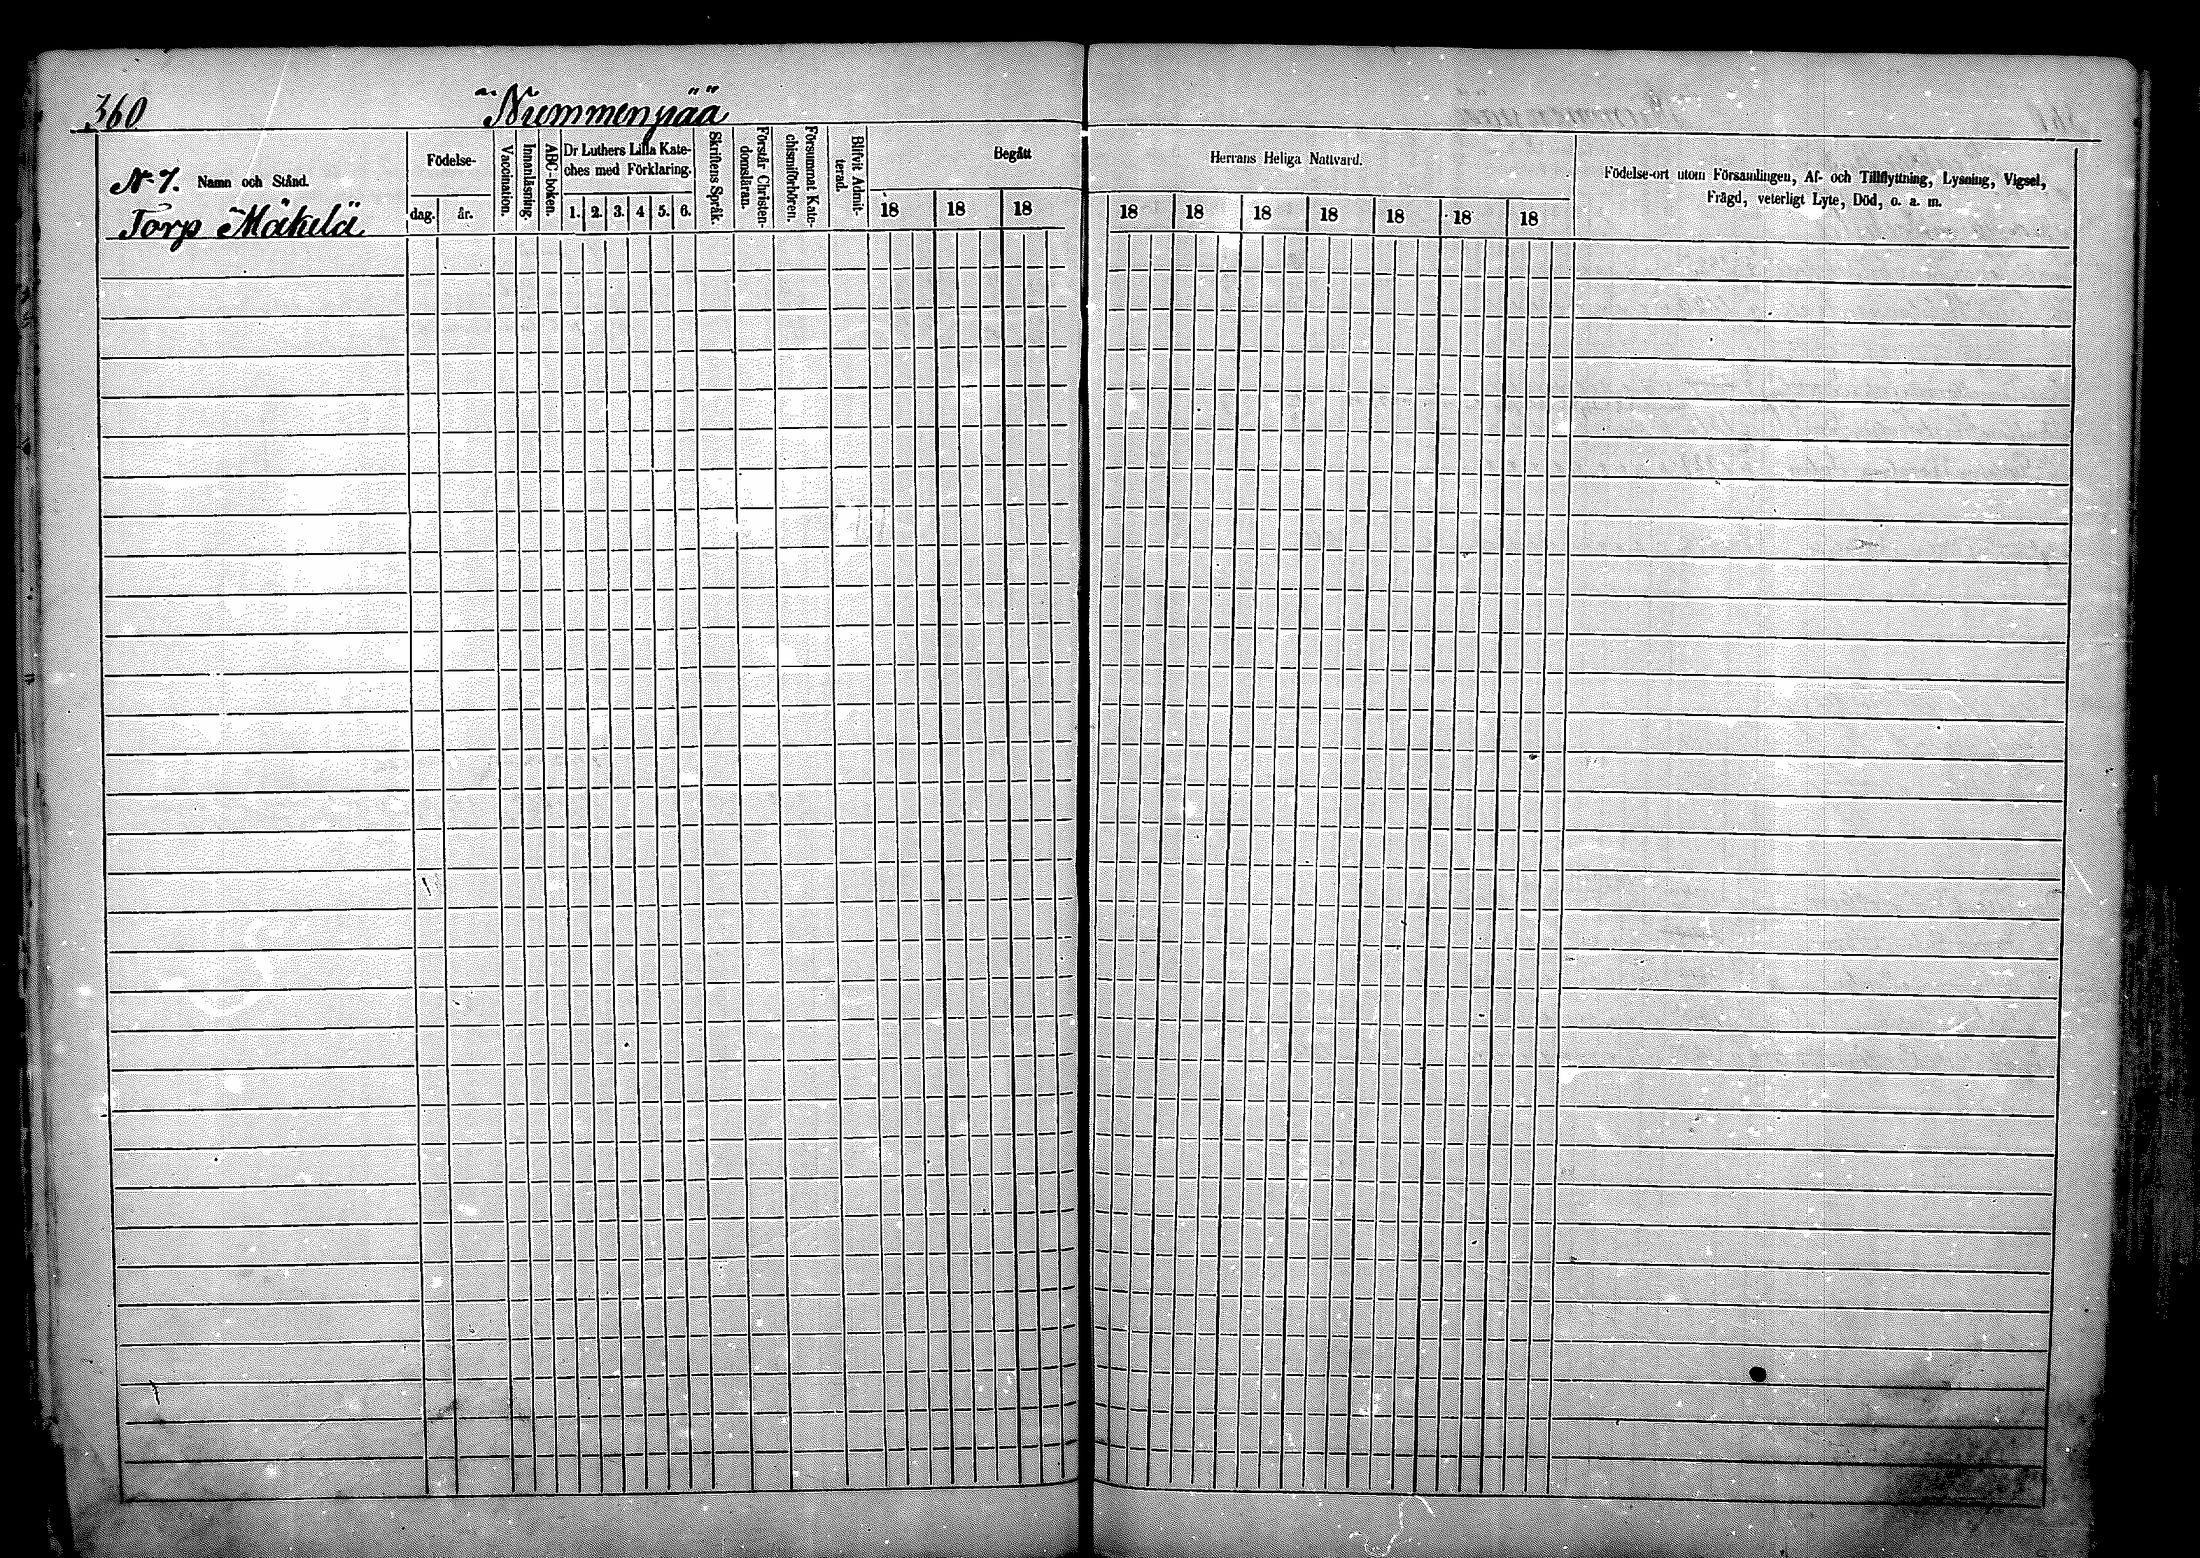 360
Nummenpää
N 7. Namn och Stånd.
Torp Mäkelä
Födelse-
dag. år.
Vaccination.
Innanläsning.
ABC-boken.
Dr Luthers Lilla Kate-
ches med Förklaring.
1. 2. 3. 4 5. 6.
Skriftens Språk.
Förstår Christen-
domsläran.
Försummat Kate-
chismiförhören.
Blifvit Admit-
terad.
Begått
18 18 18
Herrans Heliga Nattvard.
18 18 18 18 18 18 18
Födelse-ort utom Församlingen, Af- och Tillflyttning, Lysning, Vigsel,
Frägd, veterligt Lyte, Död, o. a. m.